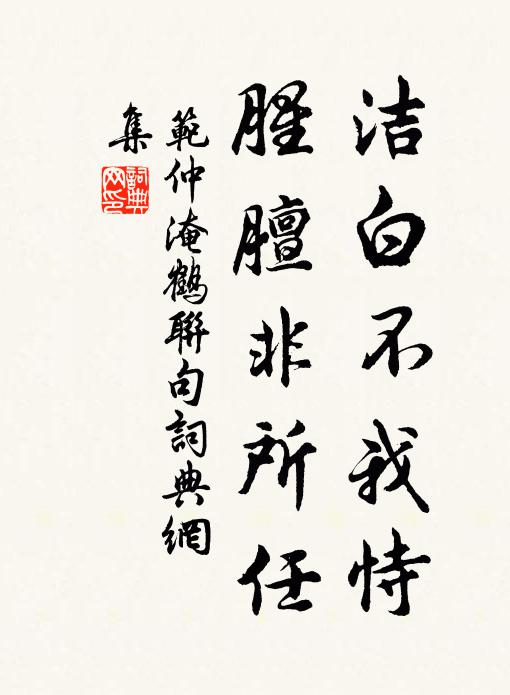 洁白不我恃
腥膻非所任
範仲淹鶴聯句詞典網
集
詞典網印